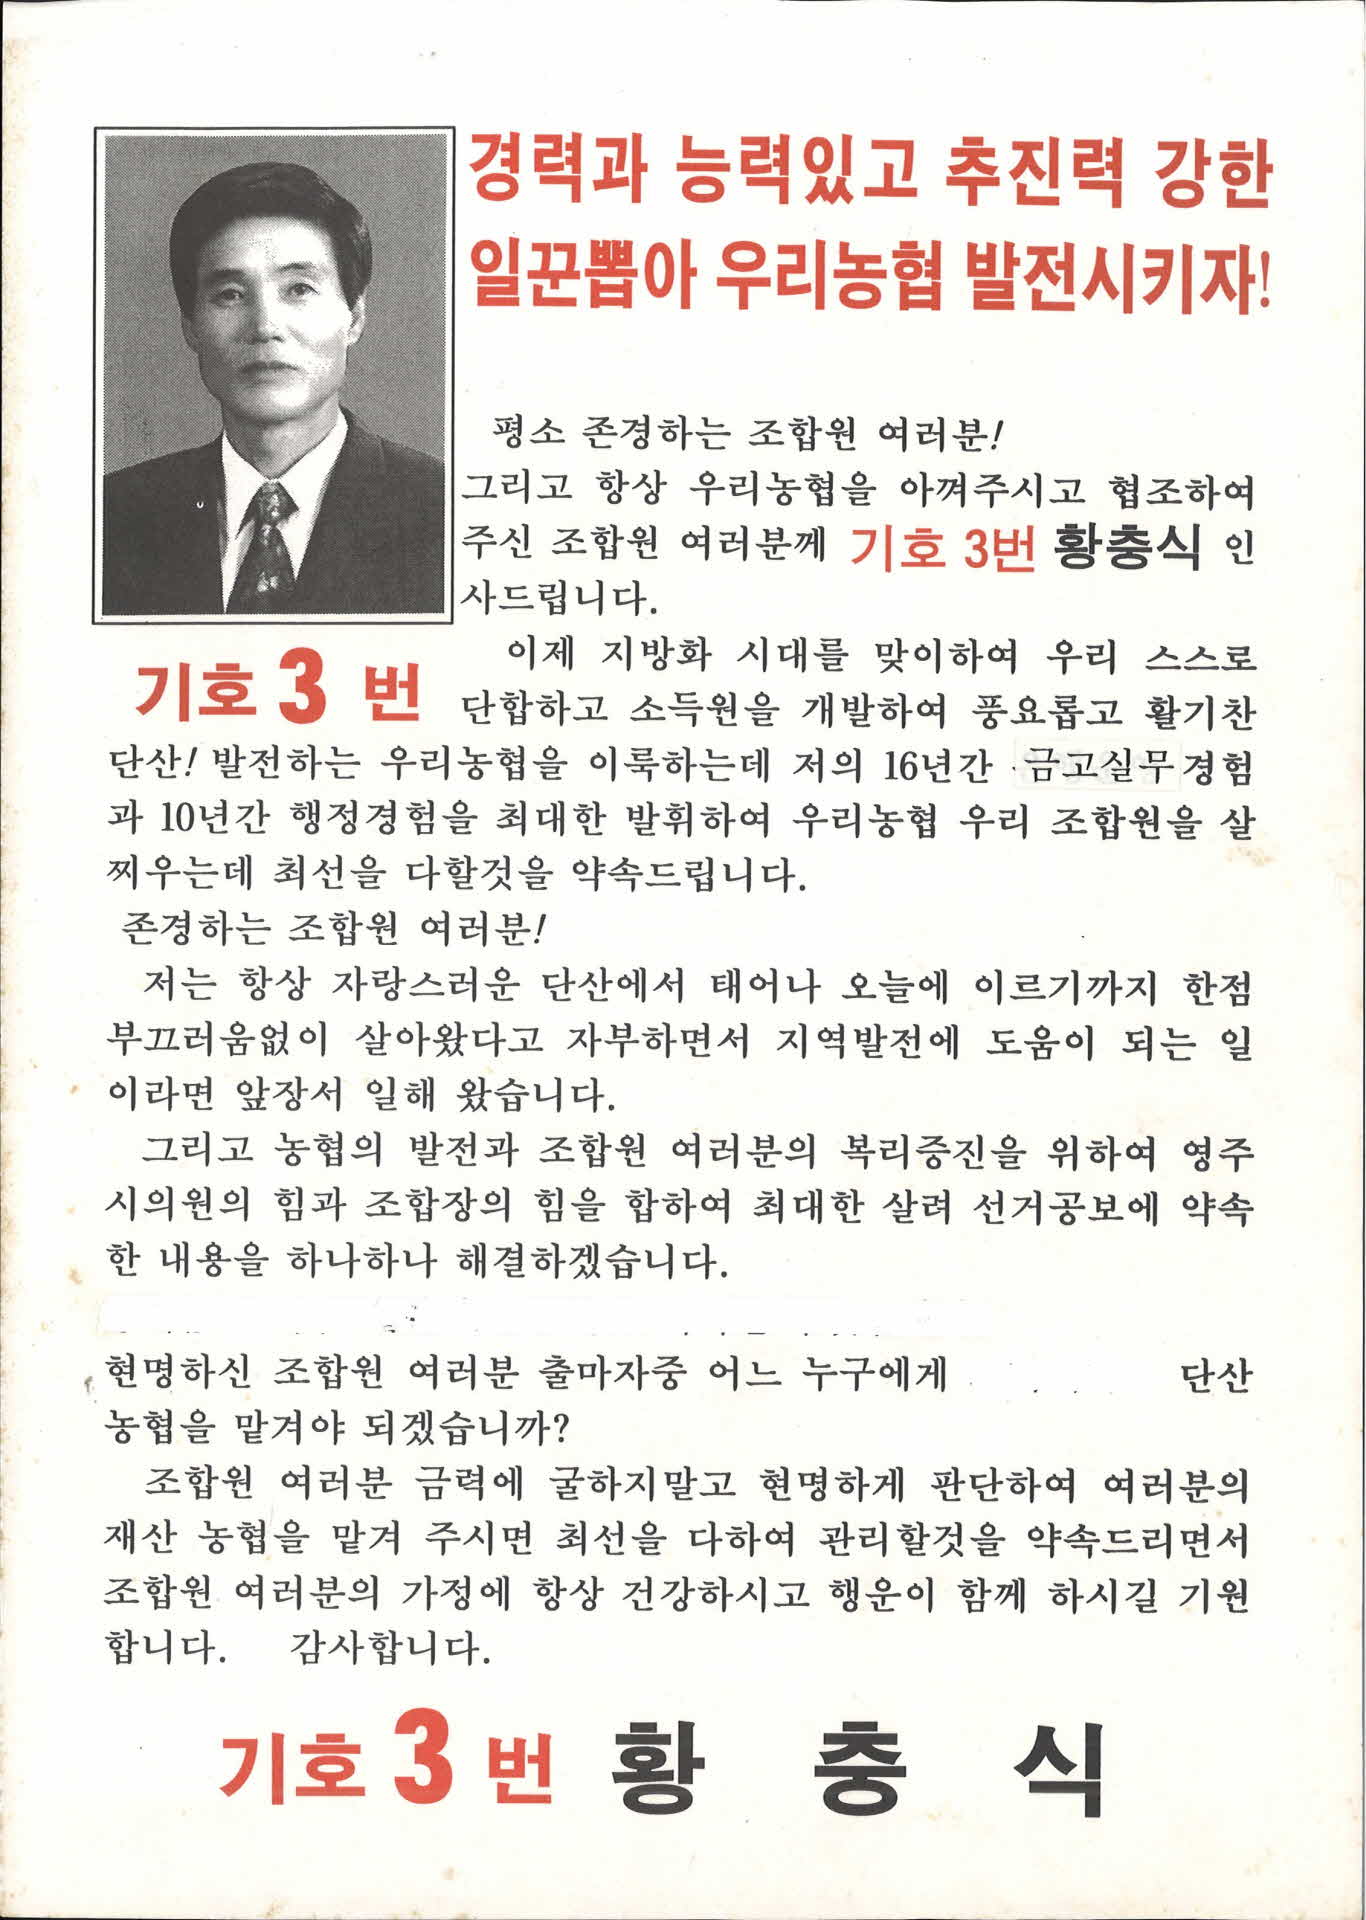 경력과 능력있고 추진력 강한
일꾼뽑아 우리농협 발전시키자!
평소 존경하는 조합원 여러분!
그리고 항상 우리농협을 아껴주시고 협조하여
주신 조합원 여러분께 기호 3번 황충식 인
사드립니다.
기호 3 번
이제 지방화 시대를 맞이하여 우리 스스로
단합하고 소득원을 개발하여 풍요롭고 활기찬
단산! 발전하는 우리농협을 이룩하는데 저의 16년간 금고실무경험
과 10년간 행정경험을 최대한 발휘하여 우리농협 우리 조합원을 살
찌우는데 최선을 다할것을 약속드립니다.
존경하는 조합원 여러분!
저는 항상 자랑스러운 단산에서 태어나 오늘에 이르기까지 한점
부끄러움없이 살아왔다고 자부하면서 지역발전에 도움이 되는 일
이라면 앞장서 일해 왔습니다.
그리고 농협의 발전과 조합원 여러분의 복리증진을 위하여 영주
시의원의 힘과 조합장의 힘을 합하여 최대한 살려 선거공보에 약속
한 내용을 하나하나 해결하겠습니다.
현명하신 조합원 여러분 출마자중 어느 누구에게 단산
농협을 맡겨야 되겠습니까?
조합원 여러분 금력에 굴하지말고 현명하게 판단하여 여러분의
재산 농협을 맡겨 주시면 최선을 다하여 관리할것을 약속드리면서
조합원 여러분의 가정에 항상 건강하시고 행운이 함께 하시길 기원
합니다. 감사합니다.
기호 3 번 황 충 식